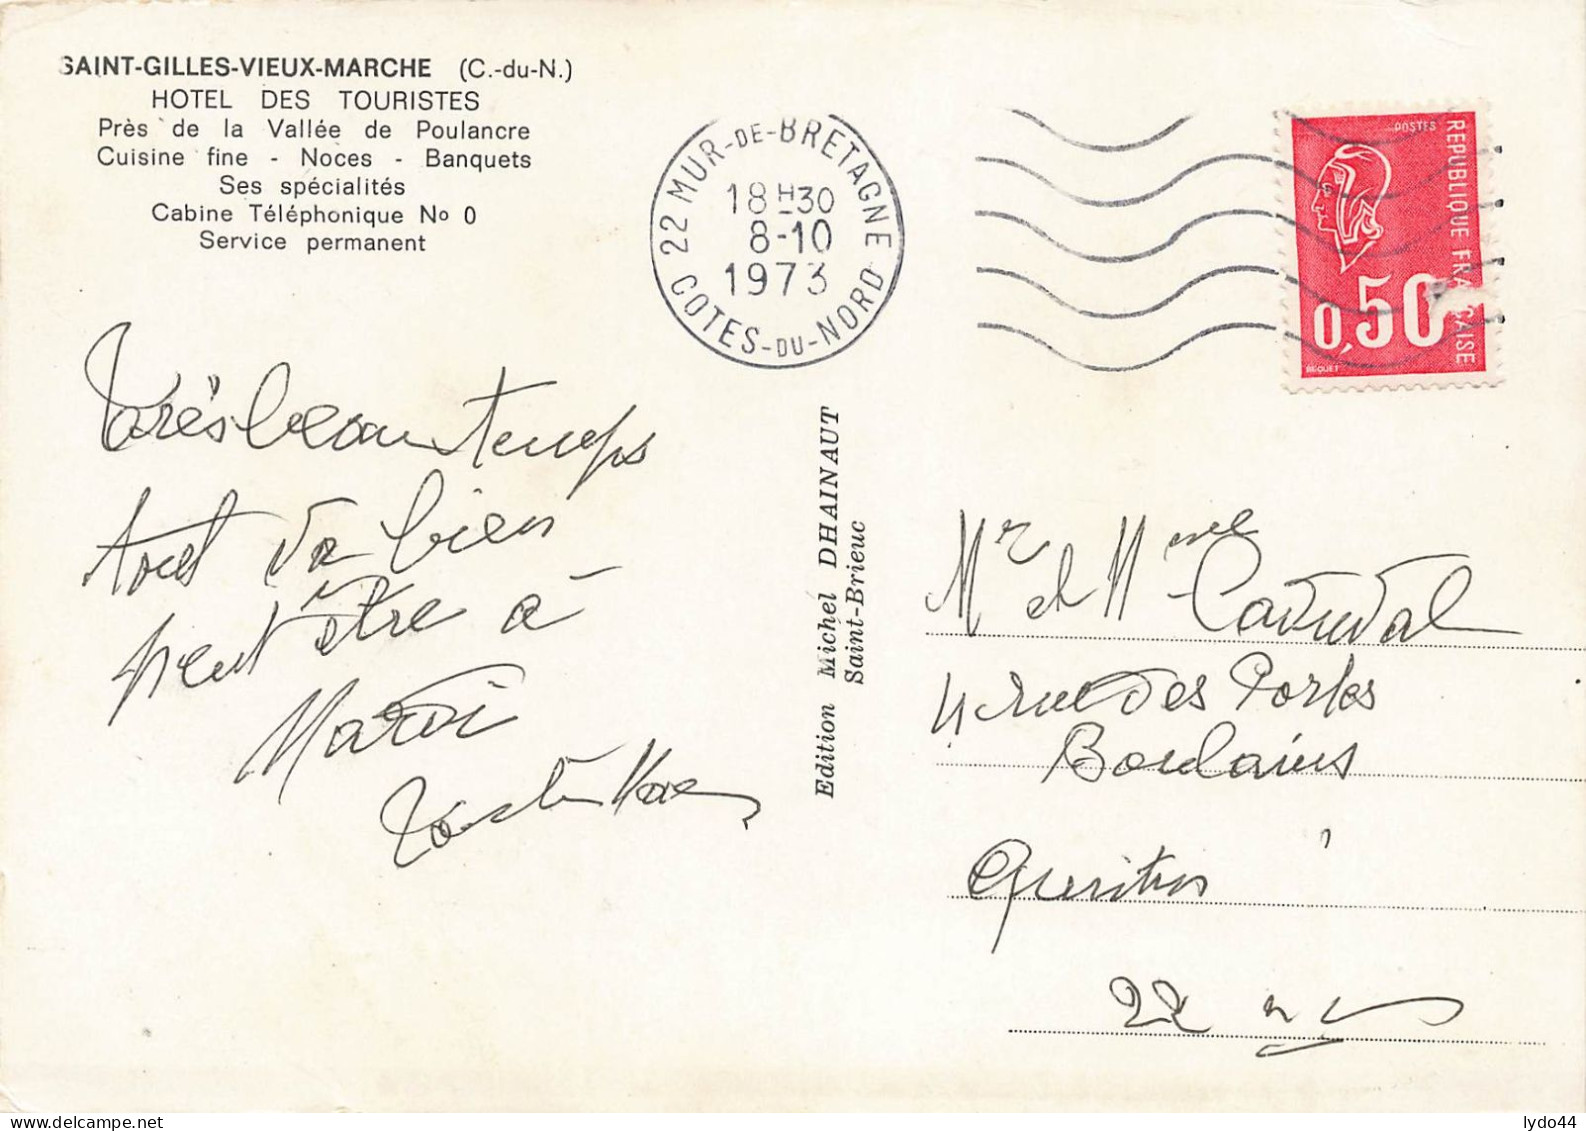 SAINT-GILLES-VIEUX-MARCHE (C.-du-N.)
HOTEL DES TOURISTES
Près de la Vallée de Poulancre
Cuisine fine - Noces - Banquets
Ses spécialités
Cabine Téléphonique No 0
Service permanent
22 MUR-DE-BRETAGNE
18H30
8-10
1973
COTES-DU-NORD
POSTES
REPUBLIQUE FRANCAISE
0,50
BEQUET
Très beau temps
tout va bien
peut être à
Mardi
Edition Michel DHAINAUT
Saint-Brieuc
Mr et Mme
4 rue des Portes
Boulains
22
lydo44